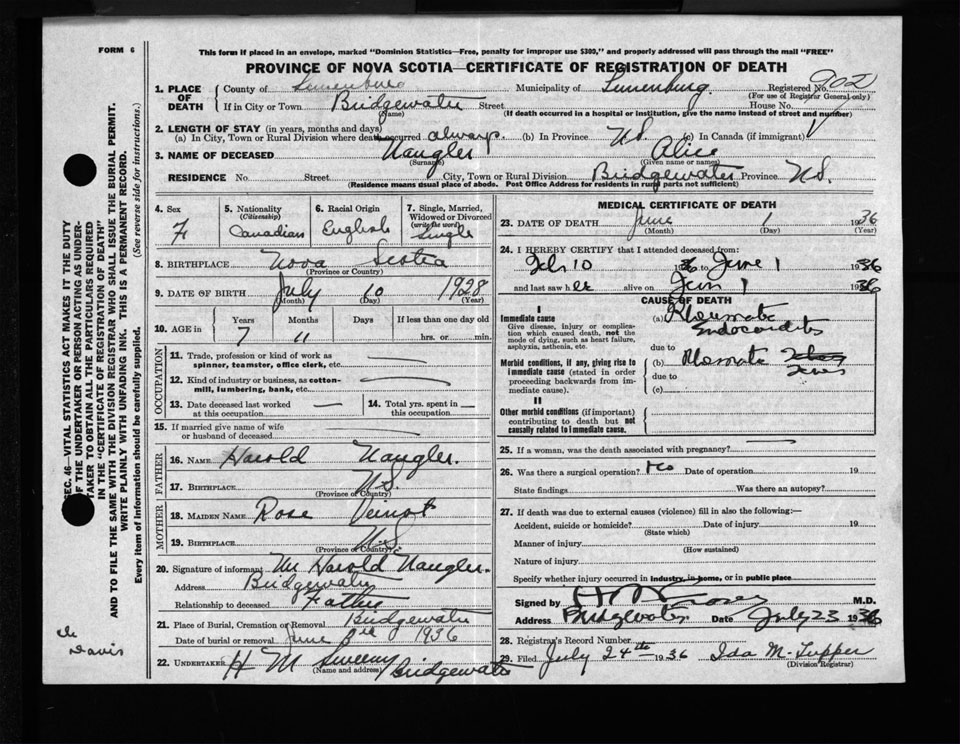 FORM 6
This form if placed in an envelope, marked "Dominion Statistics—Free, penalty for improper use $300," and properly addressed will pass through the mail "FREE"
PROVINCE OF NOVA SCOTIA—CERTIFICATE OF REGISTRATION OF DEATH
1. PLACE OF DEATH County of Lunenburg Municipality of Lunenburg. Registered No. 902
(For use of Registrar General only)
If in City or Town Bridgewater Street House No.
(Name) (If death occurred in a hospital or institution, give the name instead of street and number)
2. LENGTH OF STAY (in years, months and days)
(a) In City, Town or Rural Division where death occurred always. (b) In Province N.S. (c) In Canada (if immigrant)
3. NAME OF DECEASED Naugler Alice
(Surname) (Given name or names)
RESIDENCE No. Street City, Town or Rural Division Bridgewater Province N.S.
(Residence means usual place of abode. Post Office Address for residents in rural parts not sufficient)
4. Sex F
5. Nationality (Citizenship) Canadian
6. Racial Origin English
7. Single, Married, Widowed or Divorced (write the word) Single
8. BIRTHPLACE Nova Scotia
(Province or Country)
9. DATE OF BIRTH July 10 1928
(Month) (Day) (Year)
10. AGE in Years Months Days If less than one day old
7 11 hrs. or min.
OCCUPATION
11. Trade, profession or kind of work as spinner, teamster, office clerk, etc.
12. Kind of industry or business, as cotton-mill, lumbering, bank, etc.
13. Date deceased last worked at this occupation
14. Total yrs. spent in this occupation
15. If married give name of wife or husband of deceased
FATHER
16. NAME Harold Naugler.
17. BIRTHPLACE N.S.
(Province or Country)
MOTHER
18. MAIDEN NAME Rose Veinot
19. BIRTHPLACE N.S.
(Province or Country)
20. Signature of informant Mr Harold Naugler.
Address Bridgewater
Relationship to deceased Father
21. Place of Burial, Cremation or Removal Bridgewater
Date of burial or removal June 1936
22. UNDERTAKER H M Sweeny. Bridgewater
(Name and address)
MEDICAL CERTIFICATE OF DEATH
23. DATE OF DEATH June 1 1936
(Month) (Day) (Year)
24. I HEREBY CERTIFY that I attended deceased from:
Feb 10 36 to June 1 1936
and last saw her alive on June 1 1936
CAUSE OF DEATH
I
Immediate cause
Give disease, injury or complication which caused death, not the mode of dying, such as heart failure, asphyxia, asthenia, etc.
(a) Rheumatic Endocarditis
due to
Morbid conditions, if any, giving rise to immediate cause (stated in order proceeding backwards from immediate cause).
(b) Rheumatic Fever
due to
(c)
II
Other morbid conditions (if important) contributing to death but not causally related to immediate cause.
25. If a woman, was the death associated with pregnancy?
26. Was there a surgical operation? No Date of operation 19
State findings Was there an autopsy?
27. If death was due to external causes (violence) fill in also the following:—
Accident, suicide or homicide? Date of injury 19
(State which)
Manner of injury
(How sustained)
Nature of injury
Specify whether injury occurred in industry, in home, or in public place
Signed by M.D.
Address Bridgewater Date July 23 1936
28. Registrar's Record Number
29. Filed July 24th 1936 Ida M. Tupper
(Division Registrar)
SEC. 46—VITAL STATISTICS ACT MAKES IT THE DUTY OF THE UNDERTAKER OR PERSON ACTING AS UNDERTAKER TO OBTAIN ALL THE PARTICULARS REQUIRED IN THE "CERTIFICATE OF REGISTRATION OF DEATH" AND TO FILE THE SAME WITH THE DIVISION REGISTRAR WHO SHALL ISSUE THE BURIAL PERMIT.
WRITE PLAINLY WITH UNFADING INK. THIS IS A PERMANENT RECORD.
Every item of information should be carefully supplied. (See reverse side for instructions.)
Davis